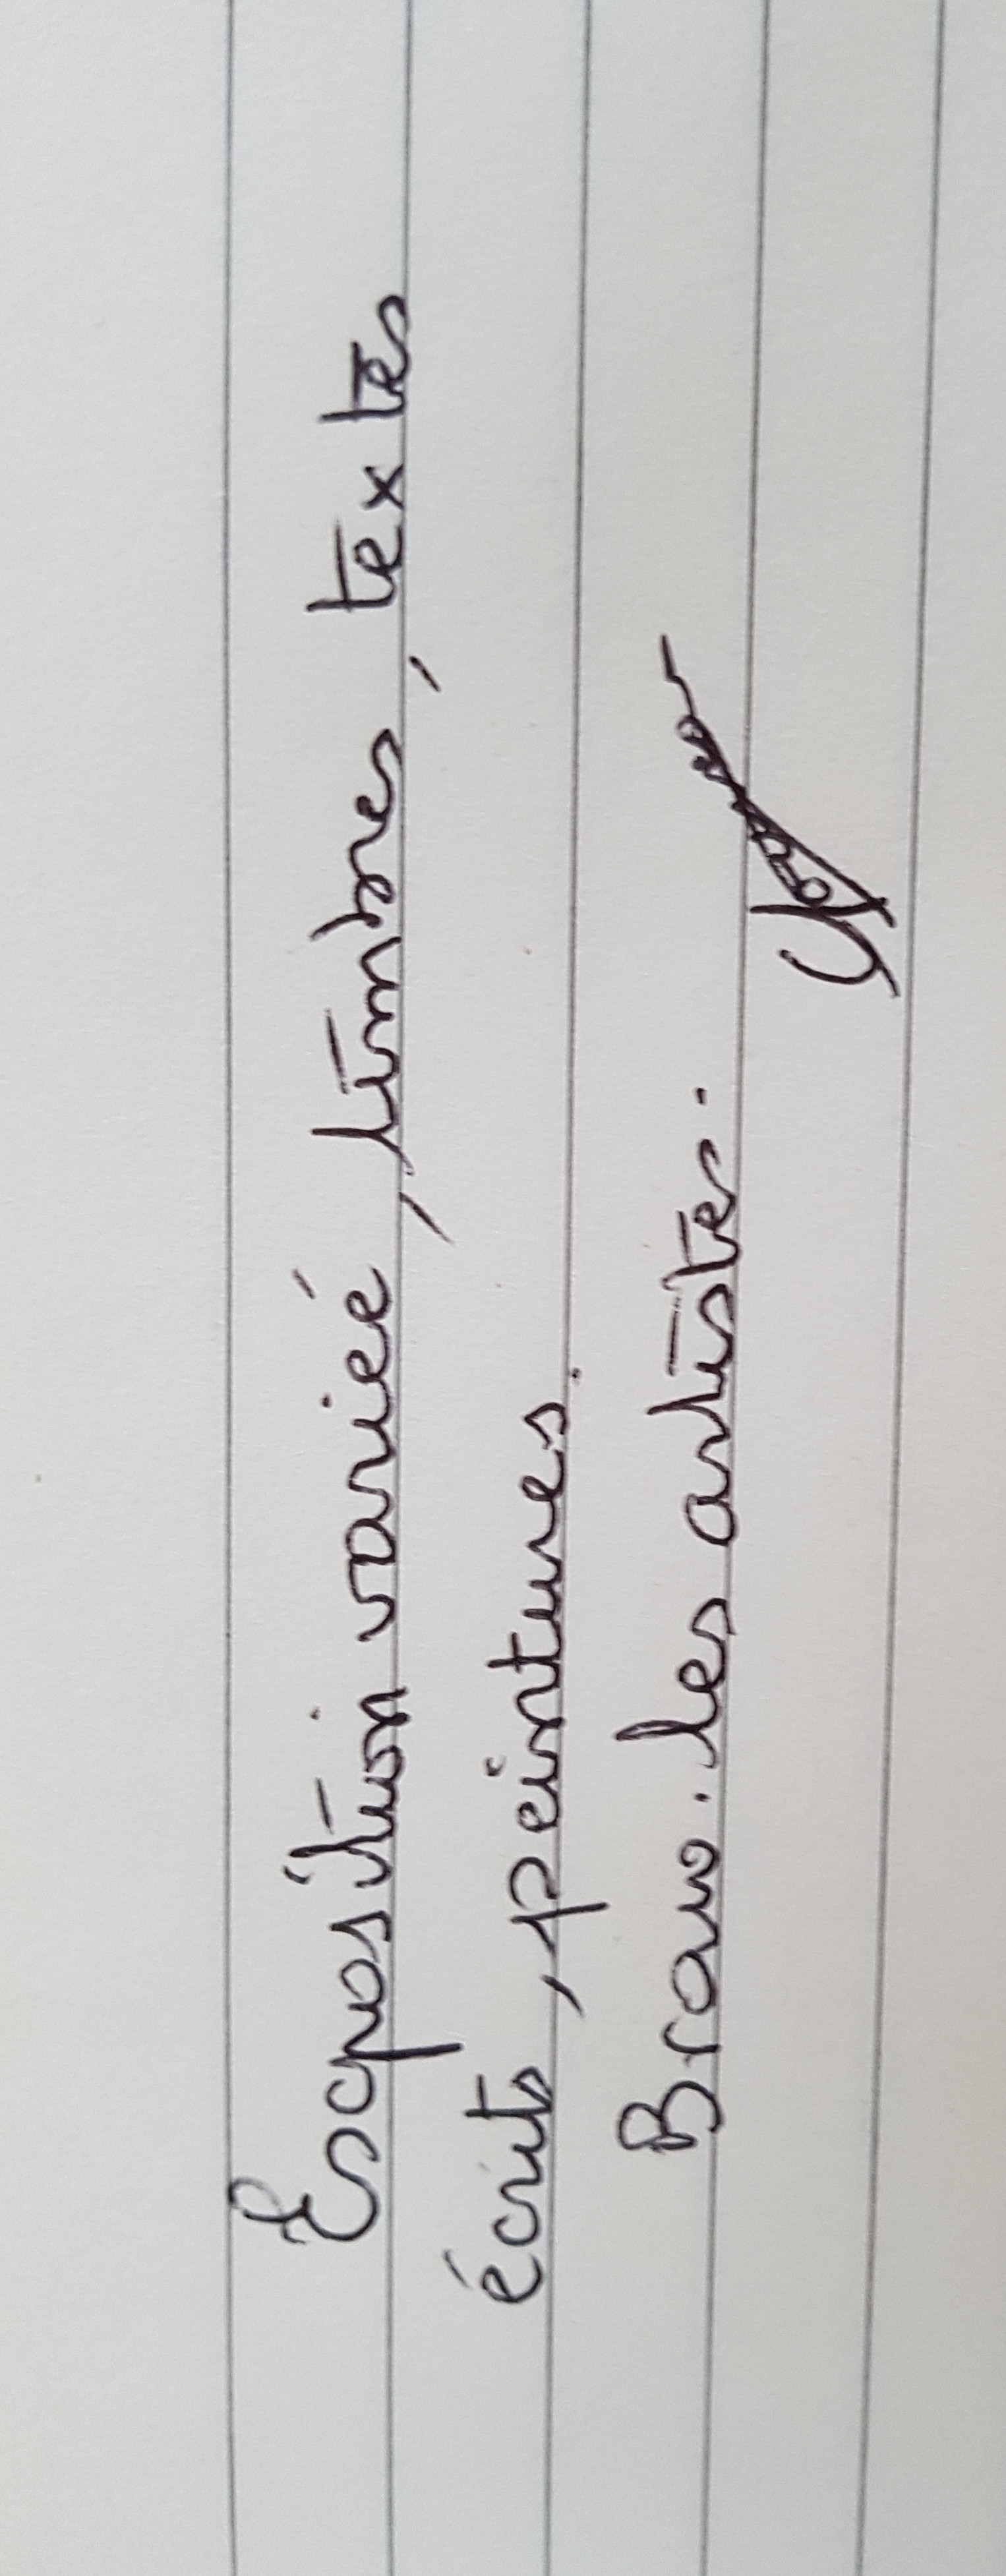 Exposition varieé, timbres, textes
écrits, peintures.
Bravo. les artistes.